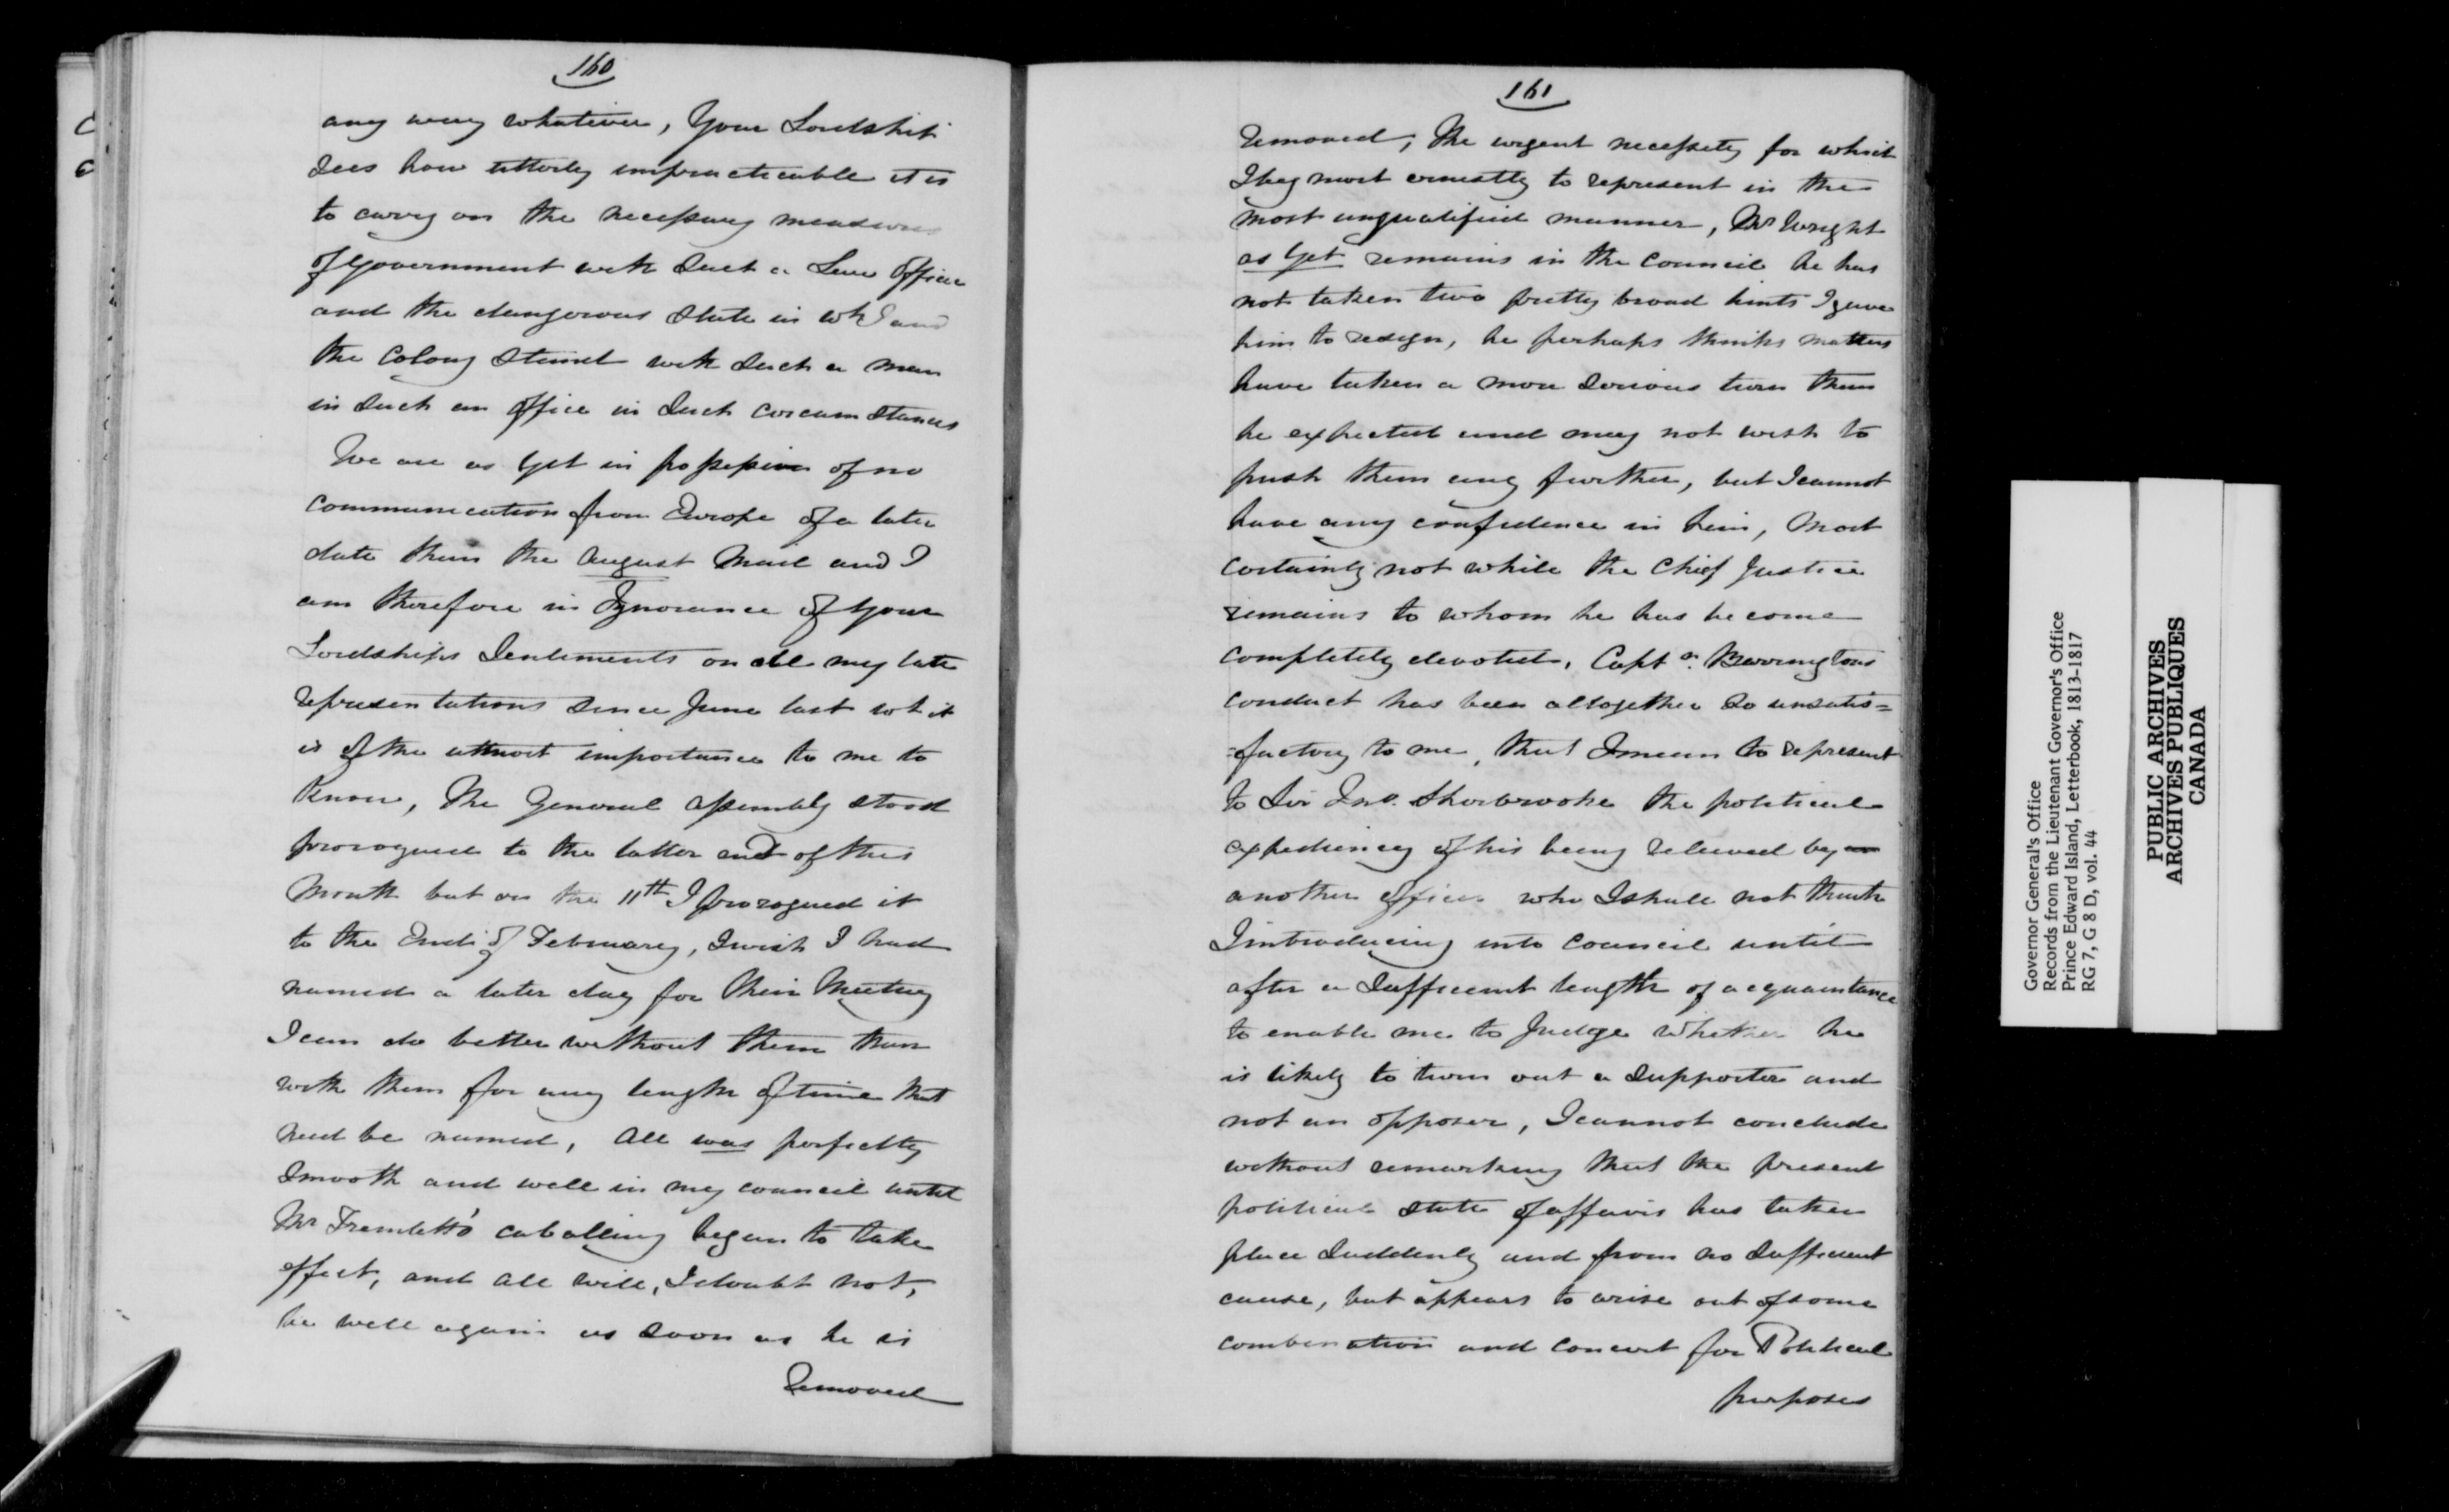 160
any way whatever, Your Lordship
sees how utterly impracticable it is
to carry on the necessary measures
of Government with such a Law Officer
and the dangerous state in wh I and
the Colony stand with such a man
in such an office in such circumstances
We are as yet in possession of no
communication from Europe of a later
date than the August Mail and I
am therefore in Ignorance of Your
Lordships Sentiments on all my late
representations since June last wh it
is of the utmost importance to me to
Know, The General assembly stood
prorogued to the latter end of this
Month but on the 11th I prorogued it
to the End of February, I wish I had
named a later day for their Meeting
I can do better without them than
with them for any length of time that
need be named, all was perfectly
Smooth and well in my council until
Mr Tremlett's caballing began to take
effect, and all will, I doubt not,
be well again as soon as he is
Removed
161
removed, The urgent necessity for which
I beg most earnestly to represent in the
most unqualified manner, Mr Wright
as yet remains in the Council he has
not taken two pretty broad hints I gave
him to resign, he perhaps thinks matters
have taken a more serious turn than
he expected and may not wish to
push them any further, but I cannot
have any confidence in him, most
certainly not while the Chief Justice
remains to whom he has become
completely devoted, Captn. Barringtons
conduct has been altogether so unsatis=
=factory to me, that I mean to represent
to Sir Jno. Sherbrooke the political
expediency of his being relieved by
another officer who I shall not think
I introducing into Council until
after a sufficient length of acquaintance
to enable me to Judge whether he
is likely to turn out a supporter and
not an opposer, I cannot conclude
without remarking that the present
political state of affairs has taken
place suddenly and from no sufficient
cause, but appears to arise out of some
combination and concert for Political
purposes
Governor General's Office
Records from the Lieutenant Governor's Office
Prince Edward Island, Letterbook, 1813-1817
RG 7, G 8 D, vol. 44
PUBLIC ARCHIVES
ARCHIVES PUBLIQUES
CANADA